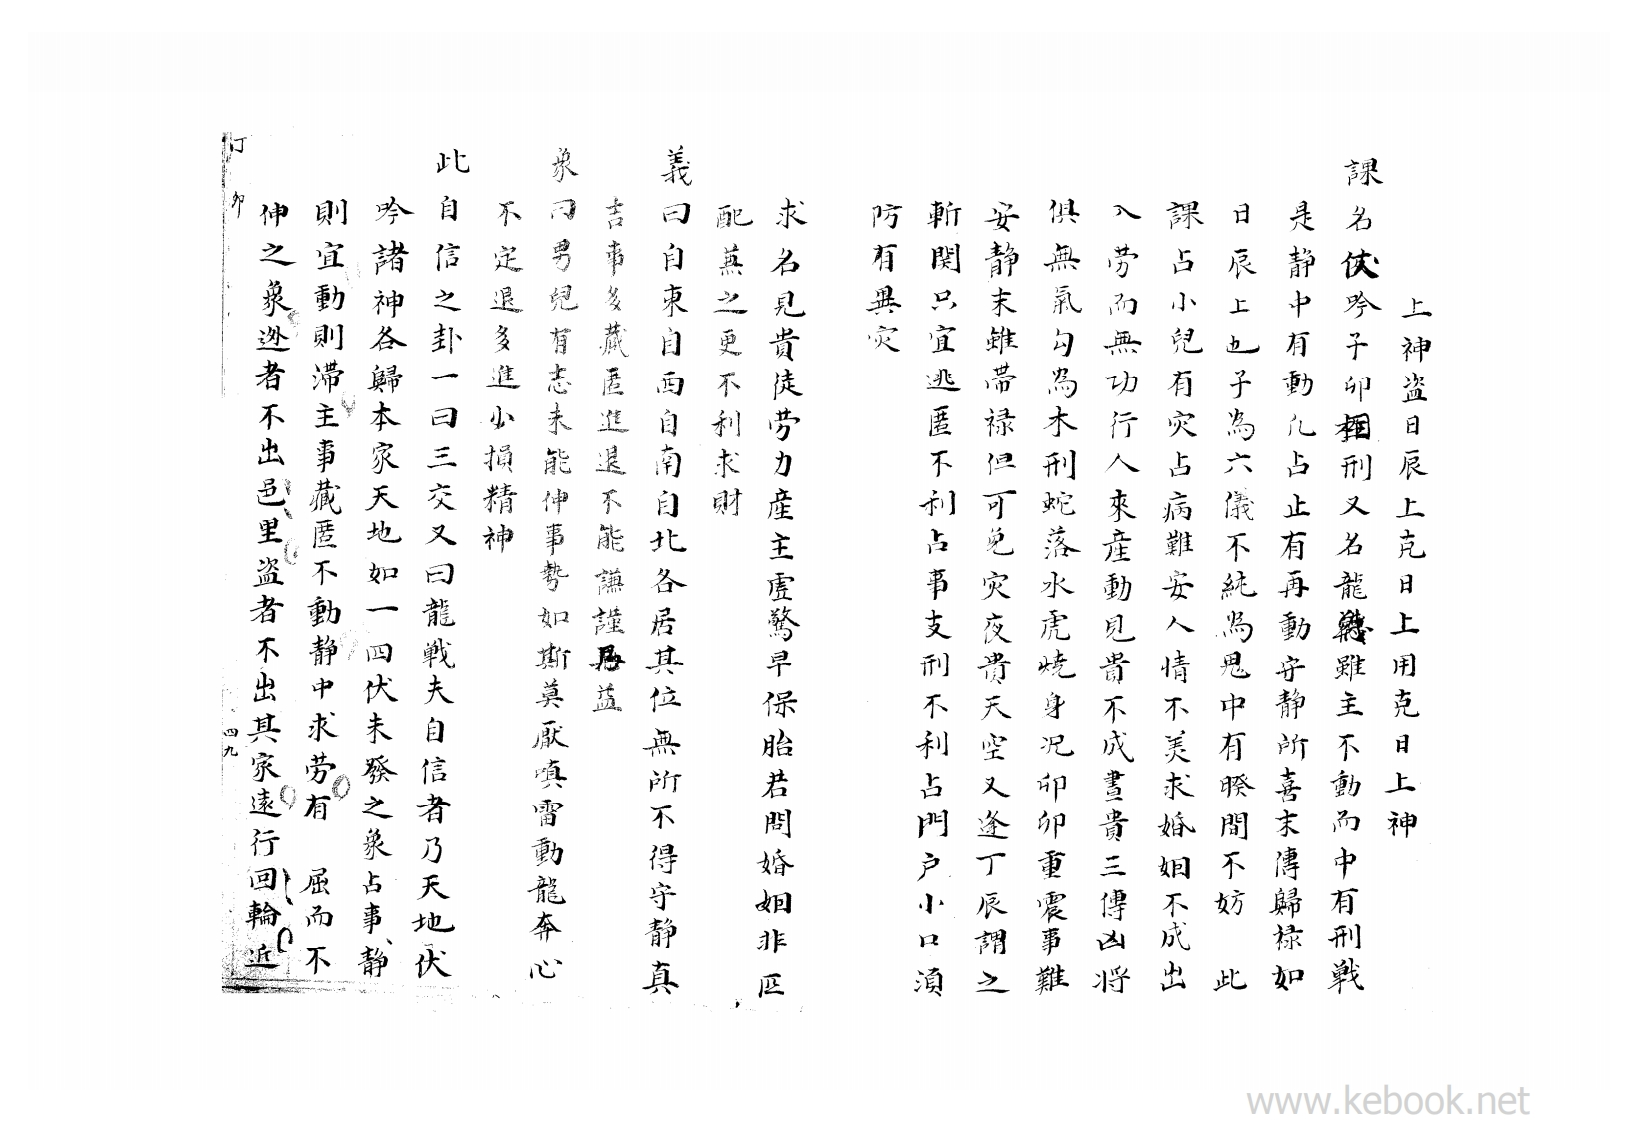 上神盗日辰上克日上用克日上神
課名伏吟子卯相刑又名龍戰雖主不動而中有刑戦
是静中有動凡占止有再動守静所喜末傳歸禄如
日辰上也子為六儀不純為鬼中有暌間不妨 此
課占小兒有灾占病難安人情不美求婚姻不成出
入劳而無功行人來産動見貴不成晝貴三傳凶将
俱無氣勾為木刑蛇落水虎燒身况卯卯重震事難
安静末雖帯禄但可免灾夜貴天空又逢丁辰謂之
斬関只宜逃匿不利占事支刑不利占門户小口湏
防有異灾
求名見貴徒劳力産主虚驚早保胎若問婚姻非匹
配蕪之更不利求財
義曰自東自西自南自北各居其位無所不得守静真
吉事多藏匿進退不能謙謹為益
象曰男兒有志未能伸事勢如斯莫厭嗔雷動龍奔心
不定退多進少損精神
此自信之卦一曰三交又曰龍戰夫自信者乃天地伏
吟諸神各歸本家天地如一四伏未發之象占事静
則宜動則滞主事藏匿不動静中求劳有 屈而不
伸之象逊者不出邑里盗者不出其家遠行回輪近
丁卯 四九
www.kebook.net